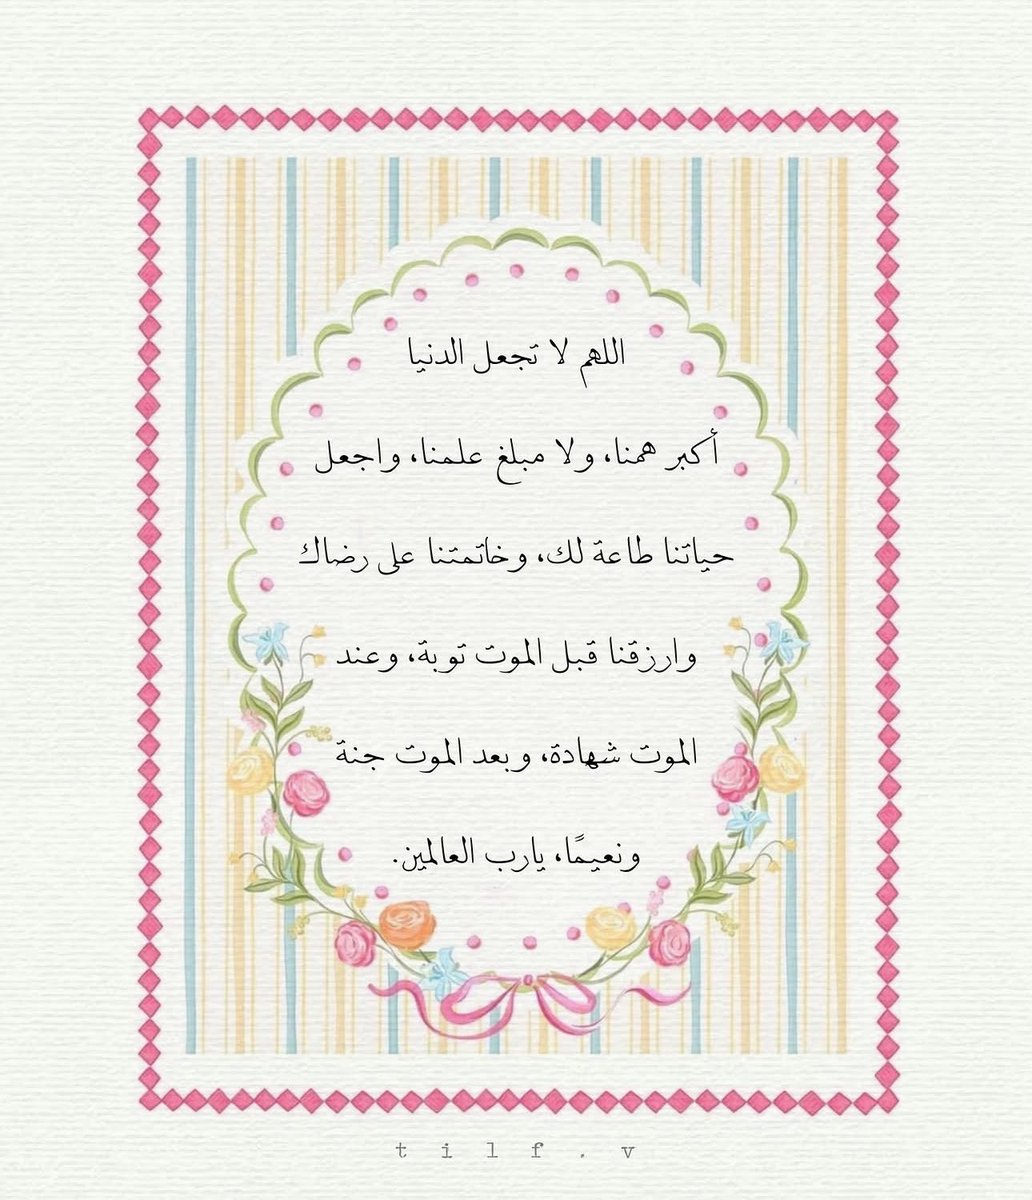 اللهم لا تجعل الدنيا
أكبر همنا، ولا مبلغ علمنا، واجعل
حياتنا طاعة لك، وخاتمتنا على رضاك
وارزقنا قبل الموت توبة، وعند
الموت شهادة، وبعد الموت جنة
ونعيمًا، يارب العالمين.
tilf.v